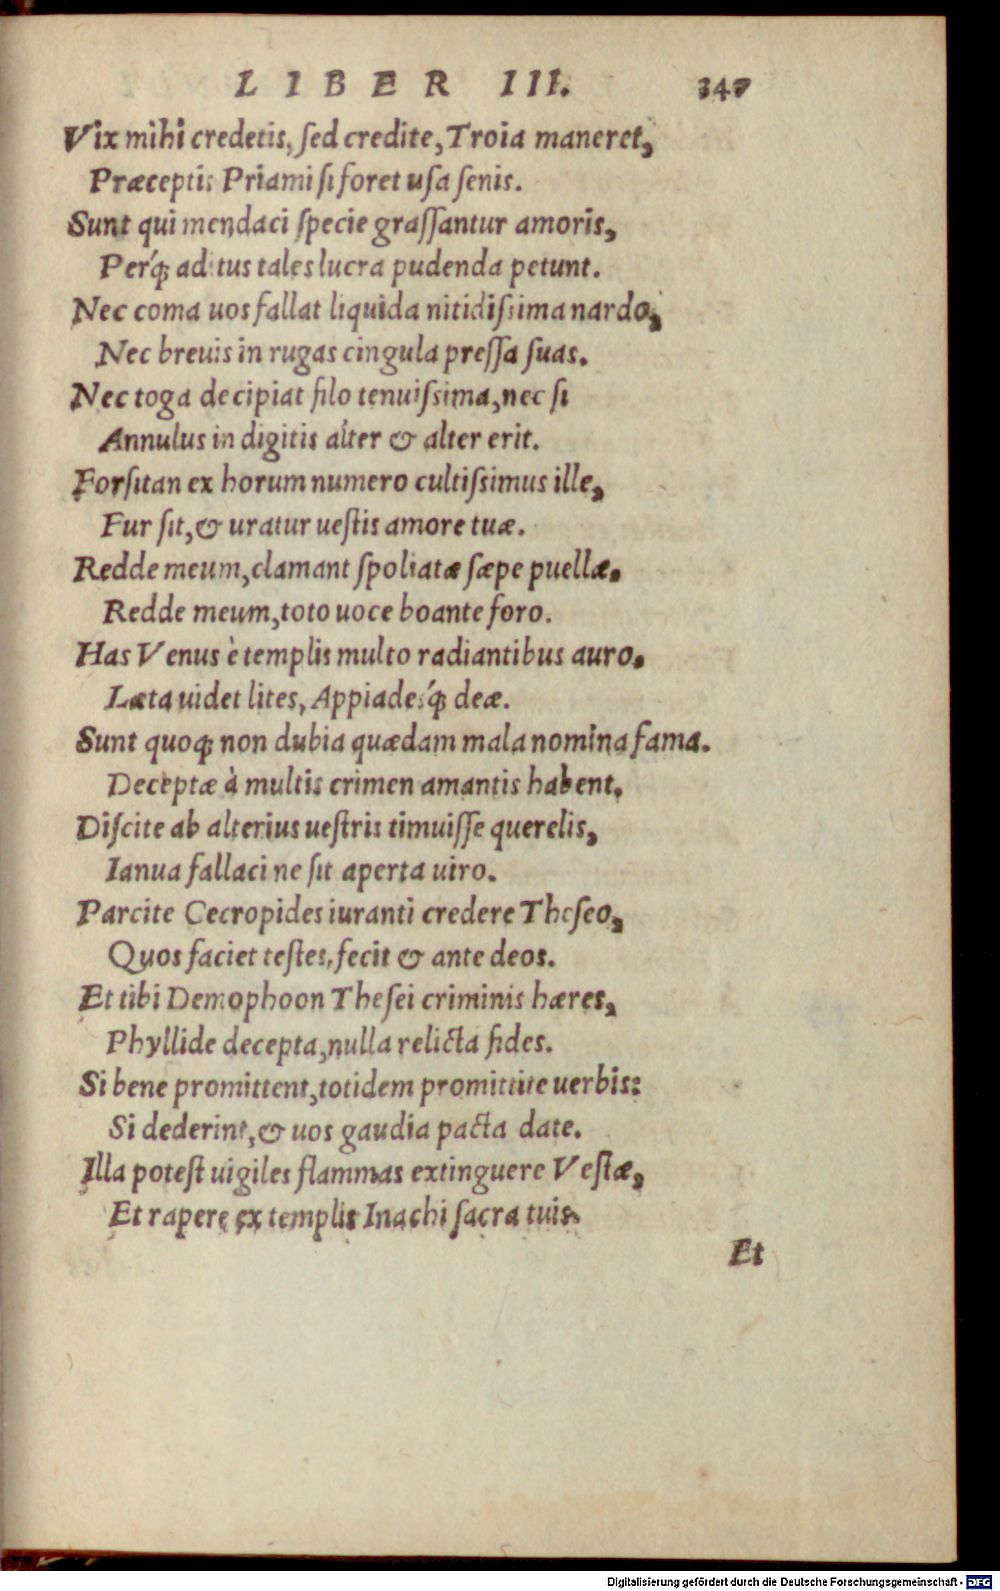 LIBER III. 347
Vix mihi credetis, ſed credite, Troia maneret,
Præceptis Priami ſi foret uſa ſenis.
Sunt qui mendaci ſpecie graſſantur amoris,
Perq́; aditus tales lucra pudenda petunt.
Nec coma uos fallat liquida nitidiſsima nardo,
Nec breuis in rugas cingula preſſa ſuas.
Nec toga decipiat filo tenuiſsima, nec ſi
Annulus in digitis alter & alter erit.
Forſitan ex horum numero cultiſsimus ille,
Fur ſit, & uratur ueſtis amore tuæ.
Redde meum, clamant ſpoliatæ ſæpe puellæ,
Redde meum, toto uoce boante foro.
Has Venus è templis multo radiantibus auro,
Læta uidet lites, Appiadesq́; deæ.
Sunt quoq; non dubia quædam mala nomina fama.
Deceptæ à multis crimen amantis habent.
Diſcite ab alterius ueſtris timuiſſe querelis,
Ianua fallaci ne ſit aperta uiro.
Parcite Cecropides iuranti credere Theſeo,
Quos faciet teſtes, fecit & ante deos.
Et tibi Demophoon Theſei criminis hæres,
Phyllide decepta, nulla relicta fides.
Si bene promittent, totidem promittite uerbis:
Si dederint, & uos gaudia pacta date.
Illa poteſt uigiles flammas extinguere Veſtæ,
Et rapere ex templis Inachi ſacra tuis.
Et
Digitalisierung gefördert durch die Deutsche Forschungsgemeinschaft - DFG